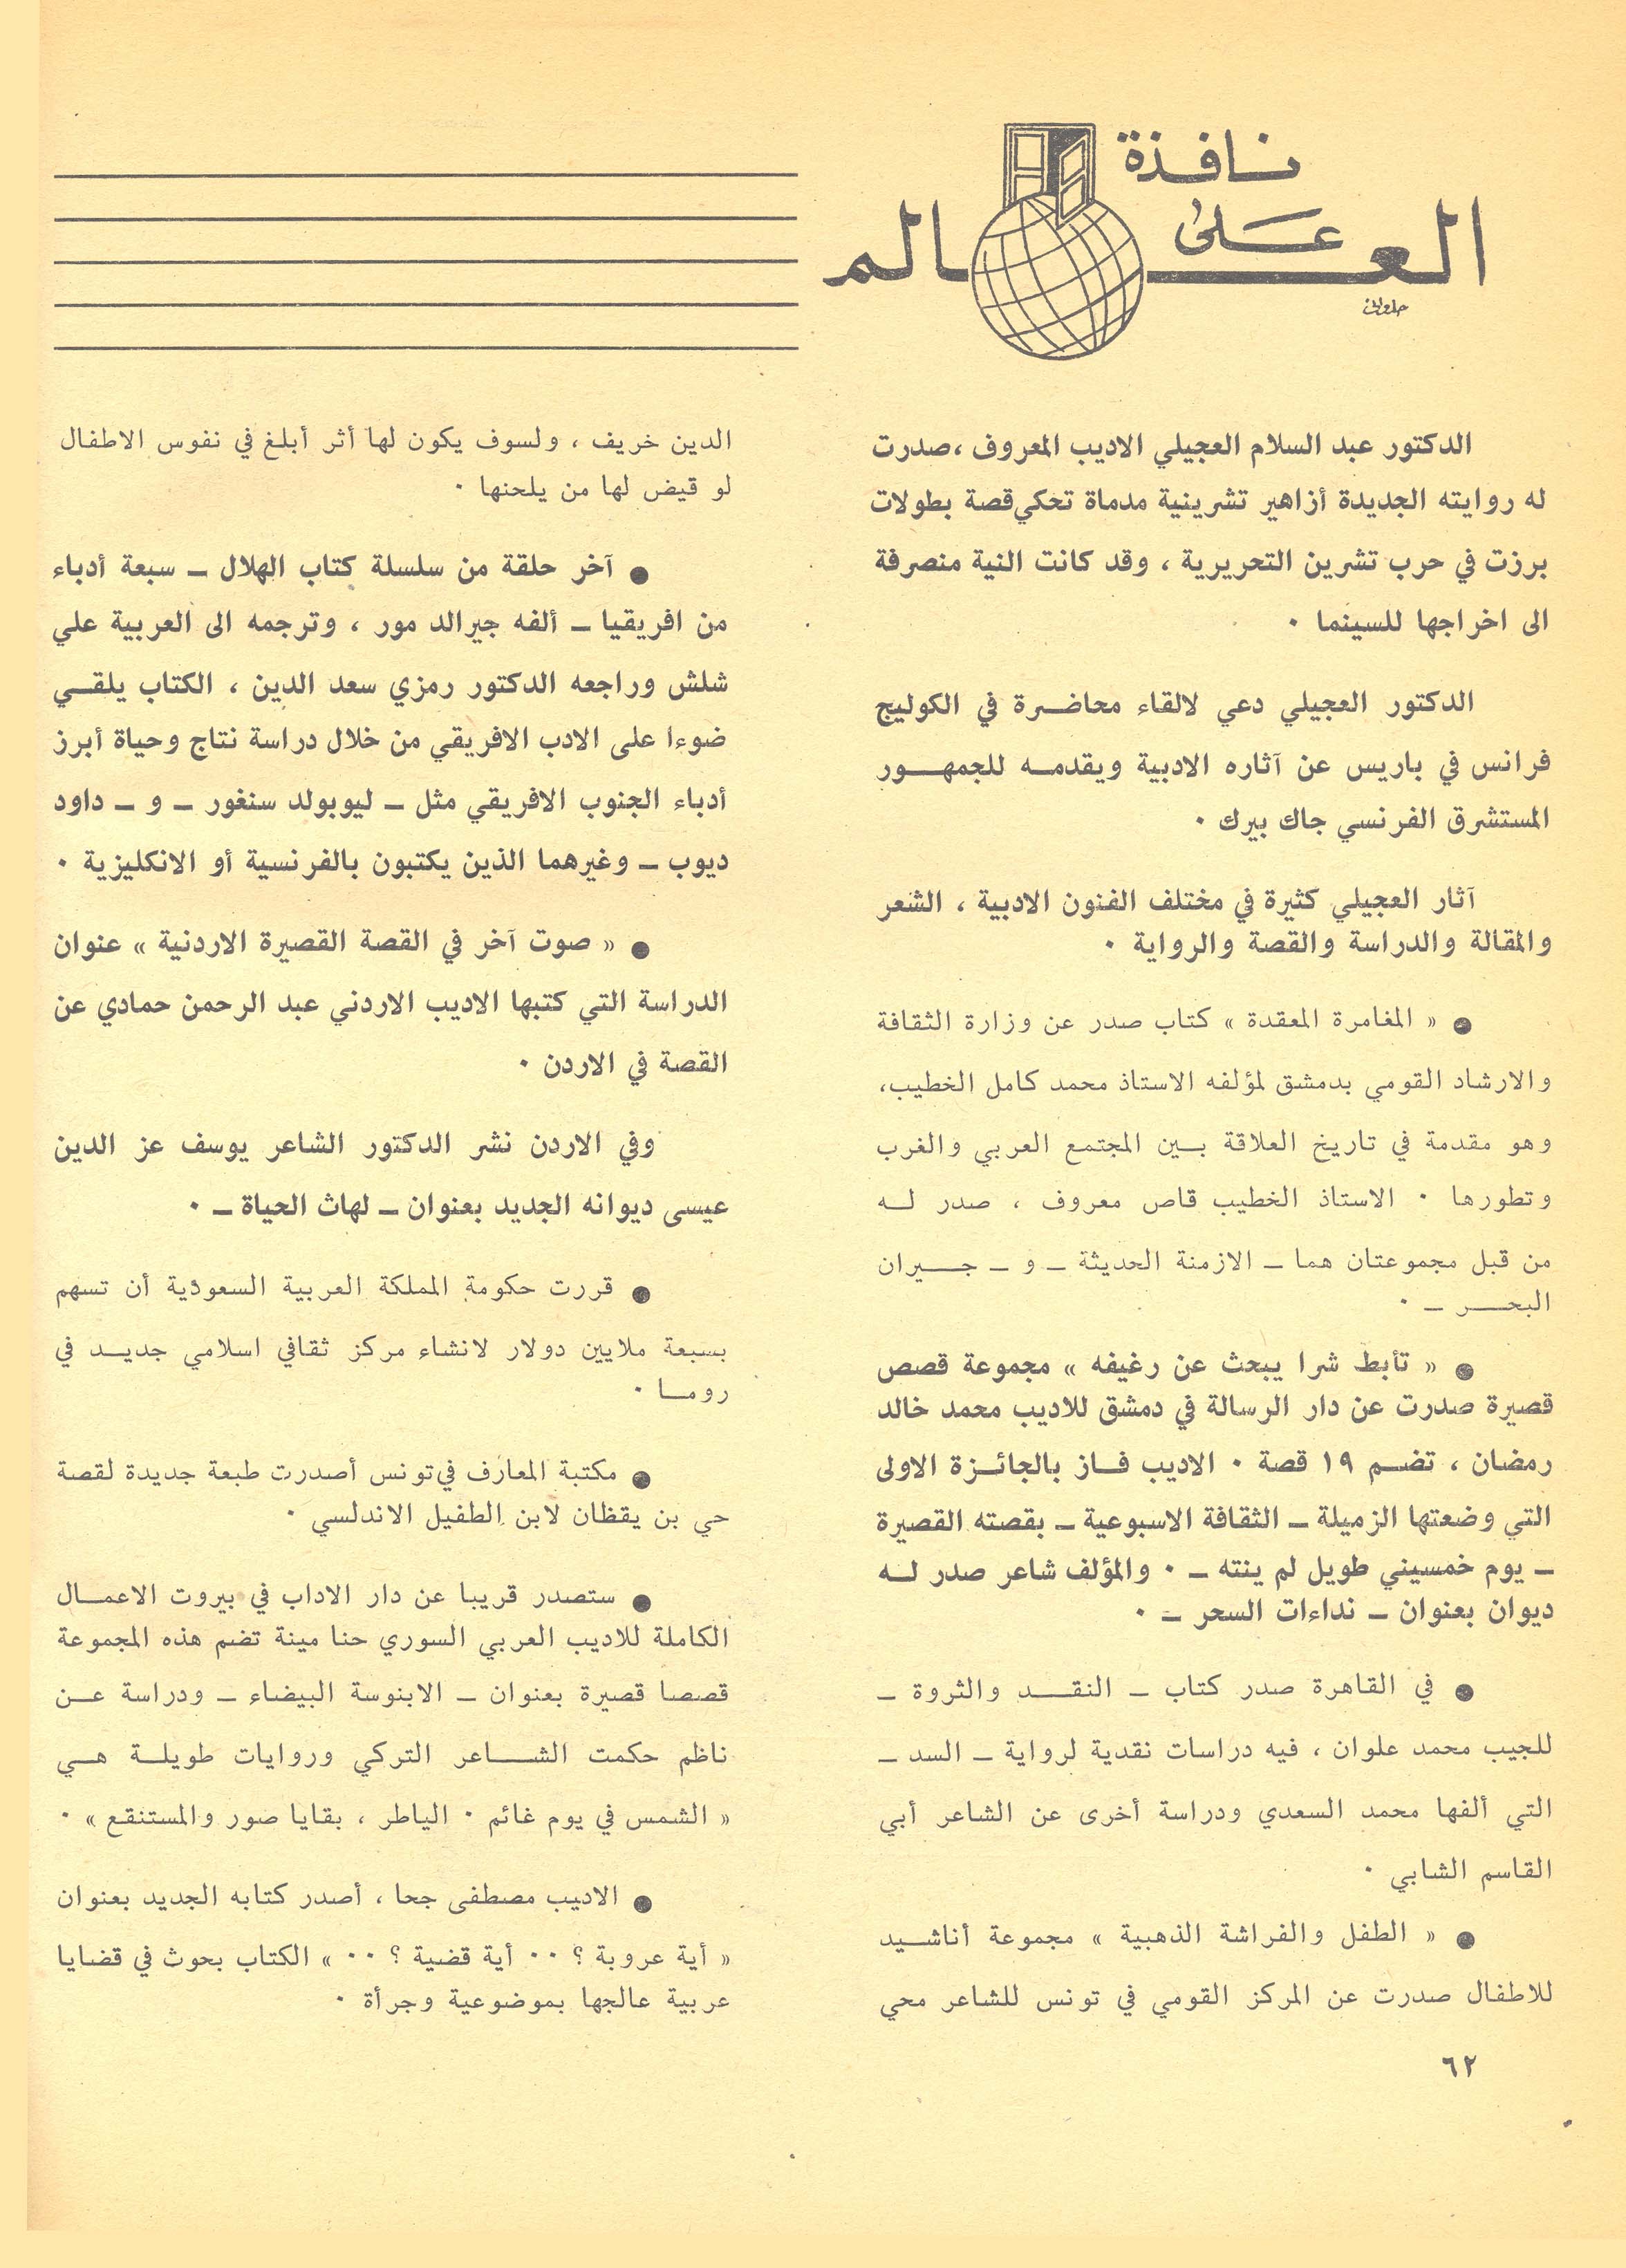 نافذة
على
العالم
الدكتور عبد السلام العجيلي الاديب المعروف ،صدرت
له روايته الجديدة أزاهير تشرينية مدماة تحكي قصة بطولات
برزت في حرب تشرين التحريرية ، وقد كانت النية منصرفة
الى اخراجها للسينما ٠
الدكتور العجيلي دعي لالقاء محاضرة في الكوليج
فرانس في باريس عن آثاره الادبية ويقدمه للجمهور
المستشرق الفرنسي جاك بيرك ٠
آثار العجيلي كثيرة في مختلف الفنون الادبية ، الشعر
والمقالة والدراسة والقصة والرواية ٠
● « المغامرة المعقدة » كتاب صدر عن وزارة الثقافة
والارشاد القومي بدمشق لمؤلفه الاستاذ محمد كامل الخطيب،
وهو مقدمة في تاريخ العلاقة بين المجتمع العربي والغرب
وتطورها ٠ الاستاذ الخطيب قاص معروف ، صدر له
من قبل مجموعتان هما – الازمنة الحديثة – و – جيران
البحر – ٠
● « تأبط شرا يبحث عن رغيفه » مجموعة قصص
قصيرة صدرت عن دار الرسالة في دمشق للاديب محمد خالد
رمضان ، تضم ١٩ قصة ٠ الاديب فاز بالجائزة الاولى
التي وضعتها الزميلة – الثقافة الاسبوعية – بقصته القصيرة
– يوم خمسيني طويل لم ينته – ٠ والمؤلف شاعر صدر له
ديوان بعنوان – نداءات السحر – ٠
● في القاهرة صدر كتاب – النقد والثروة –
للجيب محمد علوان ، فيه دراسات نقدية لرواية – السد –
التي ألفها محمد السعدي ودراسة أخرى عن الشاعر أبي
القاسم الشابي ٠
● « الطفل والفراشة الذهبية » مجموعة أناشيد
للاطفال صدرت عن المركز القومي في تونس للشاعر محي
الدين خريف ، ولسوف يكون لها أثر أبلغ في نفوس الاطفال
لو قيض لها من يلحنها ٠
● آخر حلقة من سلسلة كتاب الهلال – سبعة أدباء
من افريقيا – ألفه جيرالد مور ، وترجمه الى العربية علي
شلش وراجعه الدكتور رمزي سعد الدين ، الكتاب يلقي
ضوءا على الادب الافريقي من خلال دراسة نتاج وحياة أبرز
أدباء الجنوب الافريقي مثل – ليوبولد سنغور – و – داود
ديوب – وغيرهما الذين يكتبون بالفرنسية أو الانكليزية ٠
● « صوت آخر في القصة القصيرة الاردنية » عنوان
الدراسة التي كتبها الاديب الاردني عبد الرحمن حمادي عن
القصة في الاردن ٠
وفي الاردن نشر الدكتور الشاعر يوسف عز الدين
عيسى ديوانه الجديد بعنوان – لهاث الحياة – ٠
● قررت حكومة المملكة العربية السعودية أن تسهم
بسبعة ملايين دولار لانشاء مركز ثقافي اسلامي جديد في
روما ٠
● مكتبة المعارف في تونس أصدرت طبعة جديدة لقصة
حي بن يقظان لابن الطفيل الاندلسي ٠
● ستصدر قريبا عن دار الاداب في بيروت الاعمال
الكاملة للاديب العربي السوري حنا مينة تضم هذه المجموعة
قصصا قصيرة بعنوان – الابنوسة البيضاء – ودراسة عن
ناظم حكمت الشاعر التركي وروايات طويلة هي
« الشمس في يوم غائم ٠ الياطر ، بقايا صور والمستنقع » ٠
● الاديب مصطفى جحا ، أصدر كتابه الجديد بعنوان
« أية عروبة ؟ ٠٠ أية قضية ؟ ٠٠ » الكتاب بحوث في قضايا
عربية عالجها بموضوعية وجرأة ٠
٦٢